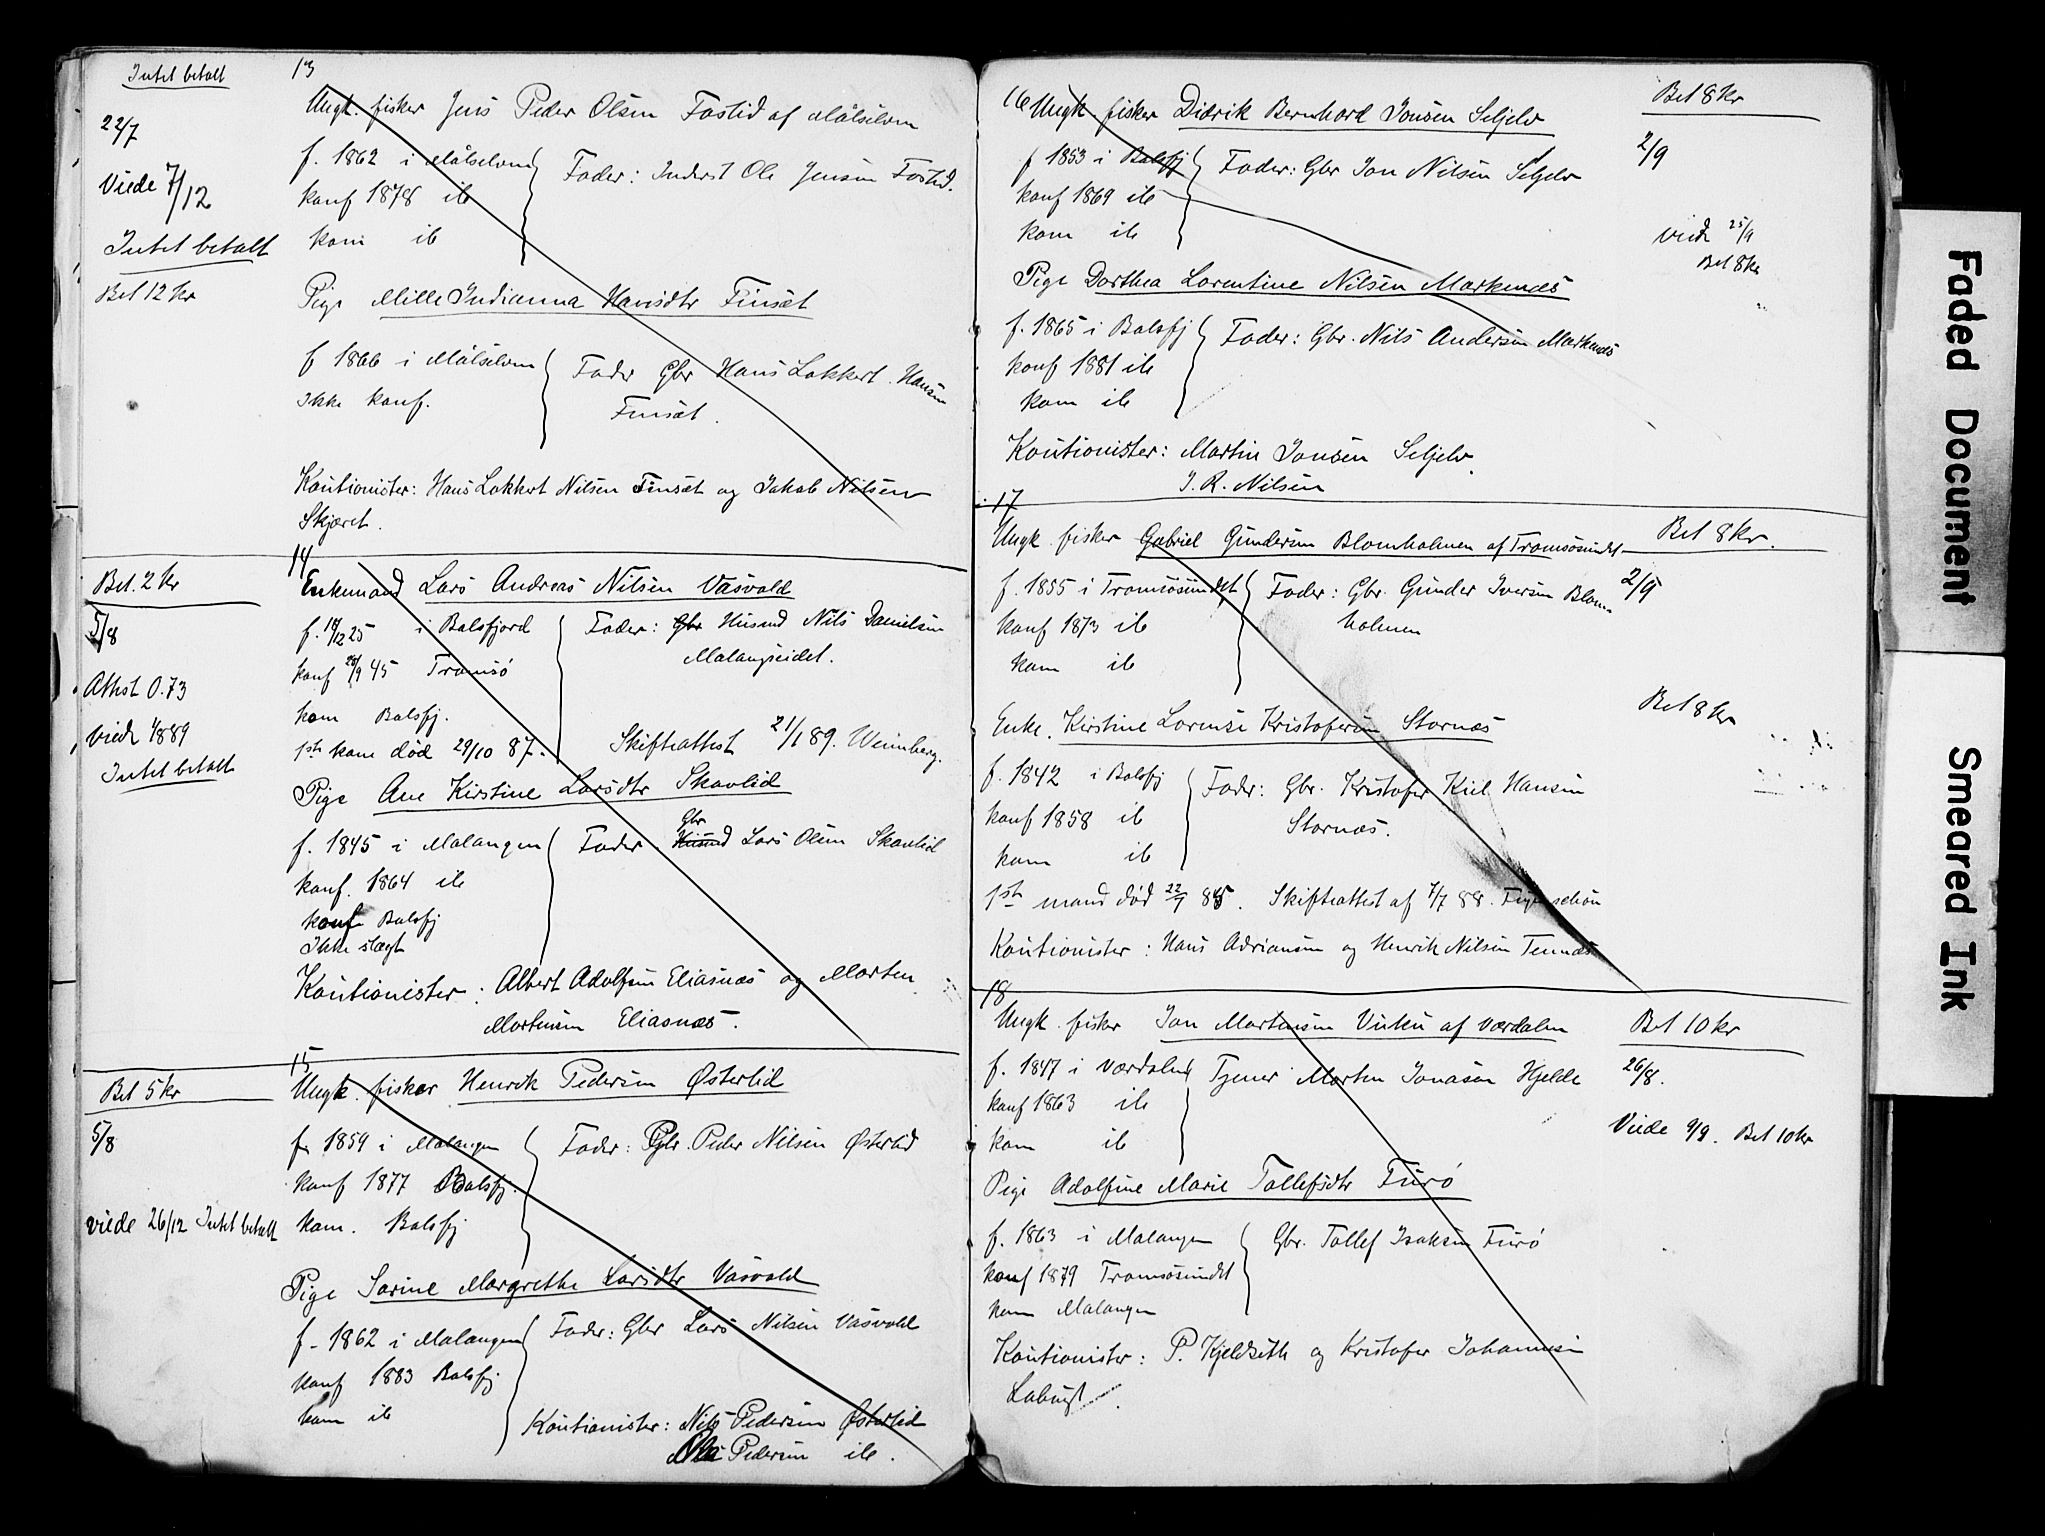 Intet betalt
13
Ungk. fisker Jens Peder Olsen Fostid af Målselven
22/7
f. 1862 i Målselven
Fader: Inderst Ole Jensen Fostid.
Viede 7/12
konf 1878 ib
kom ib
Intet betalt
Bet 12 kr
Pige Mille Indianna Hansdtr Finsæt
f 1866 i Målselven
Fader Gbr Hans Lokkert Hansen
Ikke konf.
Finsæt.
Kautionister: Hans Lokkert Nilsen Finsæt og Jakob Nilsen
Skjæret.
14
Bet. 2 kr
Enkemand Lars Andreas Nilsen Vasvold
5/8
f. 18/12 25 i Balsfjord
Fader: Gbr Husmd Nils Danielsen
Malangseidet.
konf 28/9 45 Tromsö
Attest 0.73
kom Balsfj.
viede 1889
1ste kone död 29/10 87.
Skifteattest 21/1 89. Weinberg.
Intet betalt
Pige Ane Kirstine Larsdtr Skavlid
f. 1845 i Malangen
Fader Husmd Gbr Lars Olsen Skavlid
konf. 1864 ib
kom Balsfj
Ikke slægt
Kautionister: Albert Adolfsen Eliasnæs og Morten
Mortensen Eliasnæs.
15
Bet 5 kr
Ungk. fisker Henrik Pedersen Østerlid
5/8
f. 1859 i Malangen
Fader: Gbr. Peder Nilsen Østerlid
konf 1877 Balsfj.
viede 26/12 Intet betalt
kom. Balsfj
Pige Sarine Margrethe Larsdtr Vasvold
f. 1862 i Malangen
Fader: Gbr Lars Nilsen Vasvold
konf 1883 Balsfj
kom ib
Kautionister: Nils Pedersen Østerlid
Ole Pedersen ib.
16
Ungk. fisker Didrik Bernhard Jonsen Seljelv
Bet 8 kr
f 1853 i Balsfj
Fader: Gbr Jon Nilsen Seljelv
2/9
konf 1869 ib
kom ib
viede 25/9
Bet 8 kr
Pige Dorthea Lorentine Nilsen Markenæs
f. 1865 i Balsfj
Fader: Gbr. Nils Andersen Markenæs
konf 1881 ib
kom ib
Kautionister: Martin Jonsen Seljelv.
J. R. Nilsen
17
Ungk. fisker Gabriel Gundersen Blomholmen af Tromsösundet
Bet 8 kr.
f. 1855 i Tromsösundet
Fader: Gbr. Gunder Iversen Blom-
holmen
2/9
konf 1873 ib
kom ib
Bet 8 kr
Enke. Kirstine Lorense Kristofersen Stornæs
f. 1842 i Balsfj
Fader: Gbr. Kristofer Kiel Hansen
Stornæs.
konf 1858 ib
kom ib
1ste mand död 22/7 85. Skifteattest af 7/7 88.
Kautionister: Hans Adriansen og Henrik Nilsen Tennæs
18
Ungk. fisker Jon Martensen af Værdalen
Bet 10 kr
f. 1847 i Værdalen
Tjener Morten Jonasen Hjelde
26/8.
konf 1863 ib
kom ib
Viede 9/9. Bet 10 kr
Pige Adolfine Marie Tollefsdtr Furö
f. 1863 i Malangen
Gbr. Tollef Isaksen Furö
konf 1879 Tromsösundet
kom Malangen
Kautionister: P. Kjeldseth og Kristofer Johannesen
Faded Document
Smeared Ink